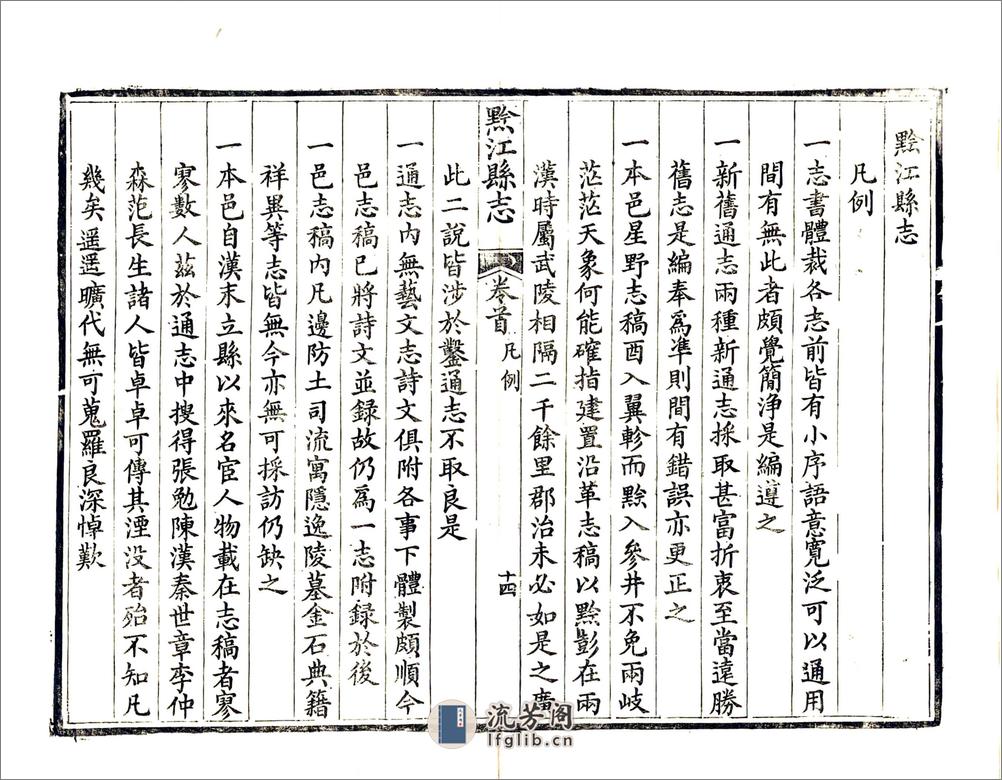 黔江縣志
凡例
一志書體裁各志前皆有小序語意寬泛可以通用
間有無此者頗覺簡浄是編遵之
一新舊通志兩種新通志採取甚富折衷至當遠勝
舊志是編奉為準則間有錯誤亦更正之
一本邑星野志稿酉入翼軫而黔入參井不免兩岐
茫茫天象何能確指建置沿革志稿以黔彭在兩
漢時屬武陵相隔二千餘里郡治未必如是之廣
黔江縣志
卷首
凡例
十四
此二說皆涉於鑿通志不取良是
一通志內無藝文志詩文俱附各事下體製頗順今
邑志稿已將詩文並録故仍為一志附録於後
一邑志稿內凡邊防土司流寓隱逸陵墓金石典籍
祥異等志皆無今亦無可採訪仍缺之
一本邑自漢末立縣以來名宦人物載在志稿者寥
寥數人茲於通志中搜得張勉陳漢秦世章李仲
森范長生諸人皆卓卓可傳其湮没者殆不知凡
幾矣遥遥曠代無可蒐羅良深悼歎
流芳阁
lfglib.cn